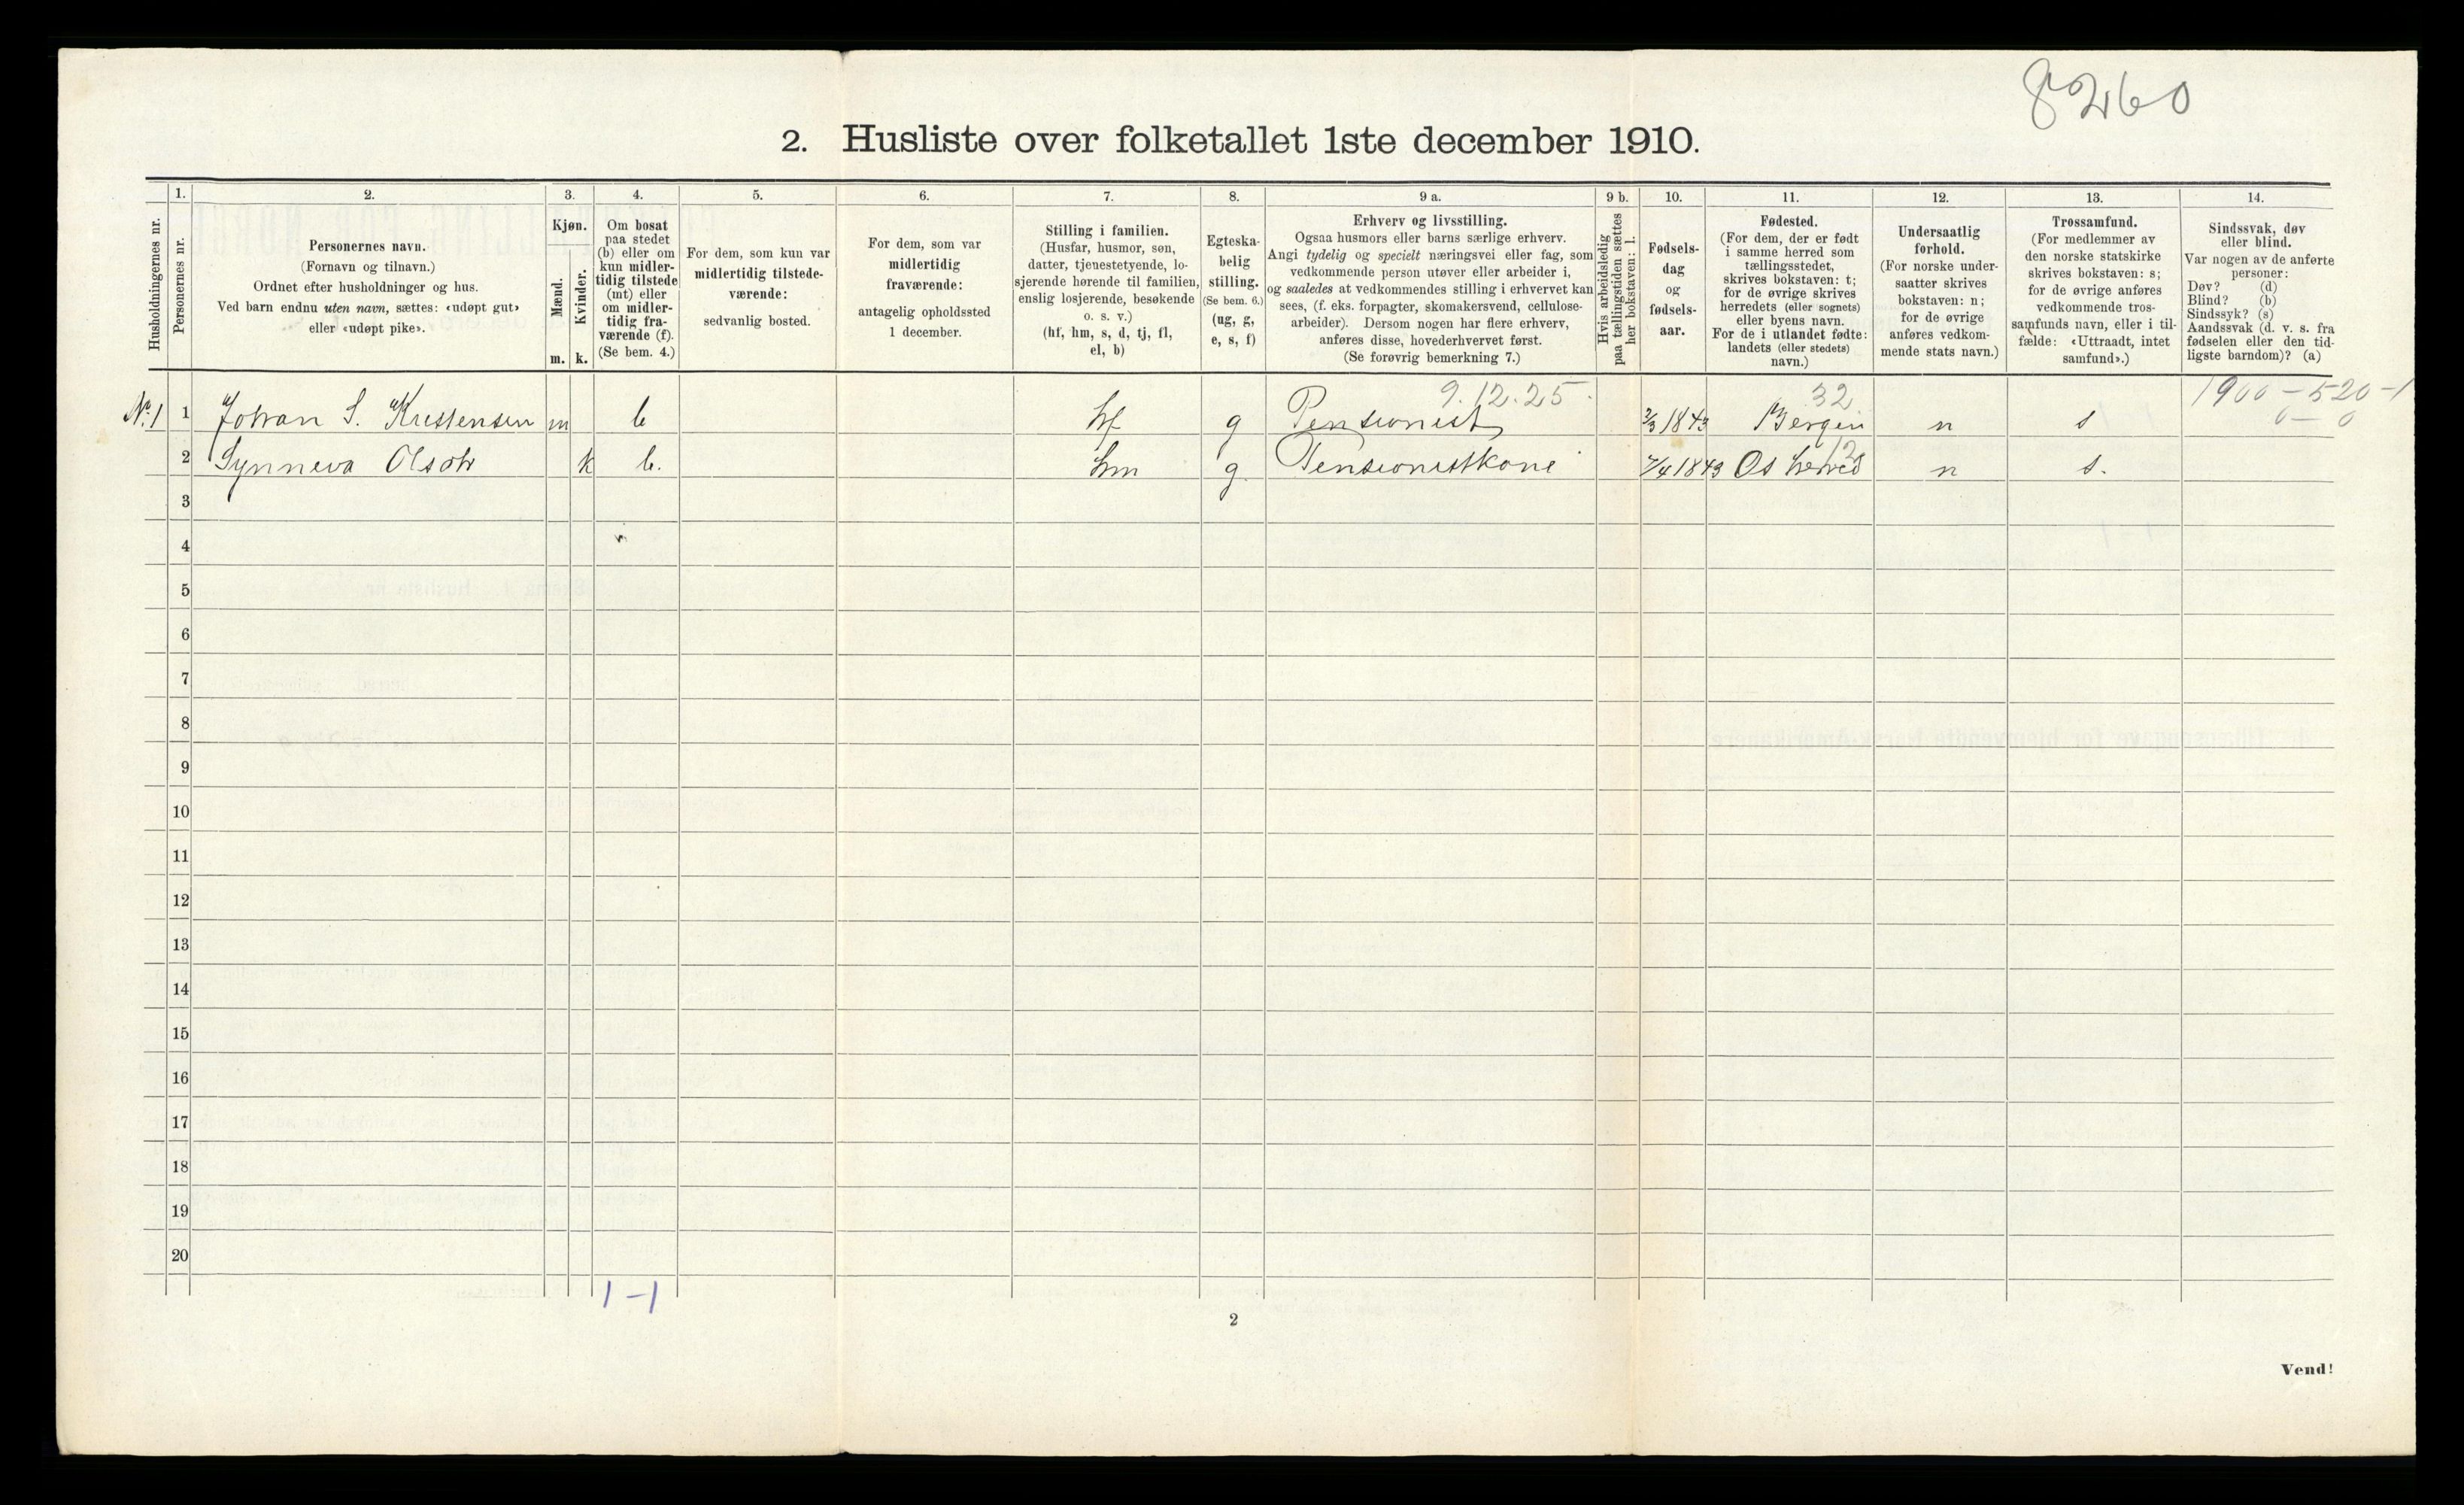 8260
2. Husliste over folketallet 1ste december 1910.
Husholdningernes nr.
1.
Personernes nr.
2.
Personernes navn.
(Fornavn og tilnavn.)
Ordnet efter husholdninger og hus.
Ved barn endnu uten navn, sættes: «udøpt gut»
eller «udøpt pike».
3.
Kjøn.
Mænd.
Kvinder.
m. k.
4.
Om bosat
paa stedet
(b) eller om
kun midler-
tidig tilstede
(mt) eller
om midler-
tidig fra-
værende (f).
(Se bem. 4.)
5.
For dem, som kun var
midlertidig tilstede-
værende:
sedvanlig bosted.
6.
For dem, som var
midlertidig
fraværende:
antagelig opholdssted
1 december.
7.
Stilling i familien.
(Husfar, husmor, søn,
datter, tjenestetyende, lo-
sjerende hørende til familien,
enslig losjerende, besøkende
o. s. v.)
(hf, hm, s, d, tj, fl,
el, b)
8.
Egteska-
belig
stilling.
(Se bem. 6.)
(ug, g,
e, s, f)
9 a.
Erhverv og livsstilling.
Ogsaa husmors eller barns særlige erhverv.
Angi tydelig og specielt næringsvei eller fag, som
vedkommende person utøver eller arbeider i,
og saaledes at vedkommendes stilling i erhvervet kan
sees, (f. eks. forpagter, skomakersvend, cellulose-
arbeider). Dersom nogen har flere erhverv,
anføres disse, hovederhvervet først.
(Se forøvrig bemerkning 7.)
9 b.
Hvis arbeidsledig
paa tællingstiden sættes
her bokstaven: l.
10.
Fødsels-
dag
og
fødsels-
aar.
11.
Fødested.
(For dem, der er født
i samme herred som
tællingsstedet,
skrives bokstaven: t;
for de øvrige skrives
herredets (eller sognets)
eller byens navn.
For de i utlandet fødte:
landets (eller stedets)
navn.)
12.
Undersaatlig
forhold.
(For norske under-
saatter skrives
bokstaven: n;
for de øvrige
anføres vedkom-
mende stats navn.)
13.
Trossamfund.
(For medlemmer av
den norske statskirke
skrives bokstaven: s;
for de øvrige anføres
vedkommende tros-
samfunds navn, eller i til-
fælde: «Uttraadt, intet
samfund».)
14.
Sindssvak, døv
eller blind.
Var nogen av de anførte
personer:
Døv? (d)
Blind? (b)
Sindssyk? (s)
Aandssvak (d. v. s. fra
fødselen eller den tid-
ligste barndom)? (a)
9.12.25. 32 1900-520-1
0-0
No. 1 1 Johan S. Kristensen m b hf g Pensionist 2/3 1843 Bergen n s
12
2 Synneva Olsdtr k b. hm g Pensionistkone 7/4 1843 Os herred n s.
3
4
5
6
7
8
9
10
11
12
13
14
15
16
17
18
19
20
1-1
2
Vend!